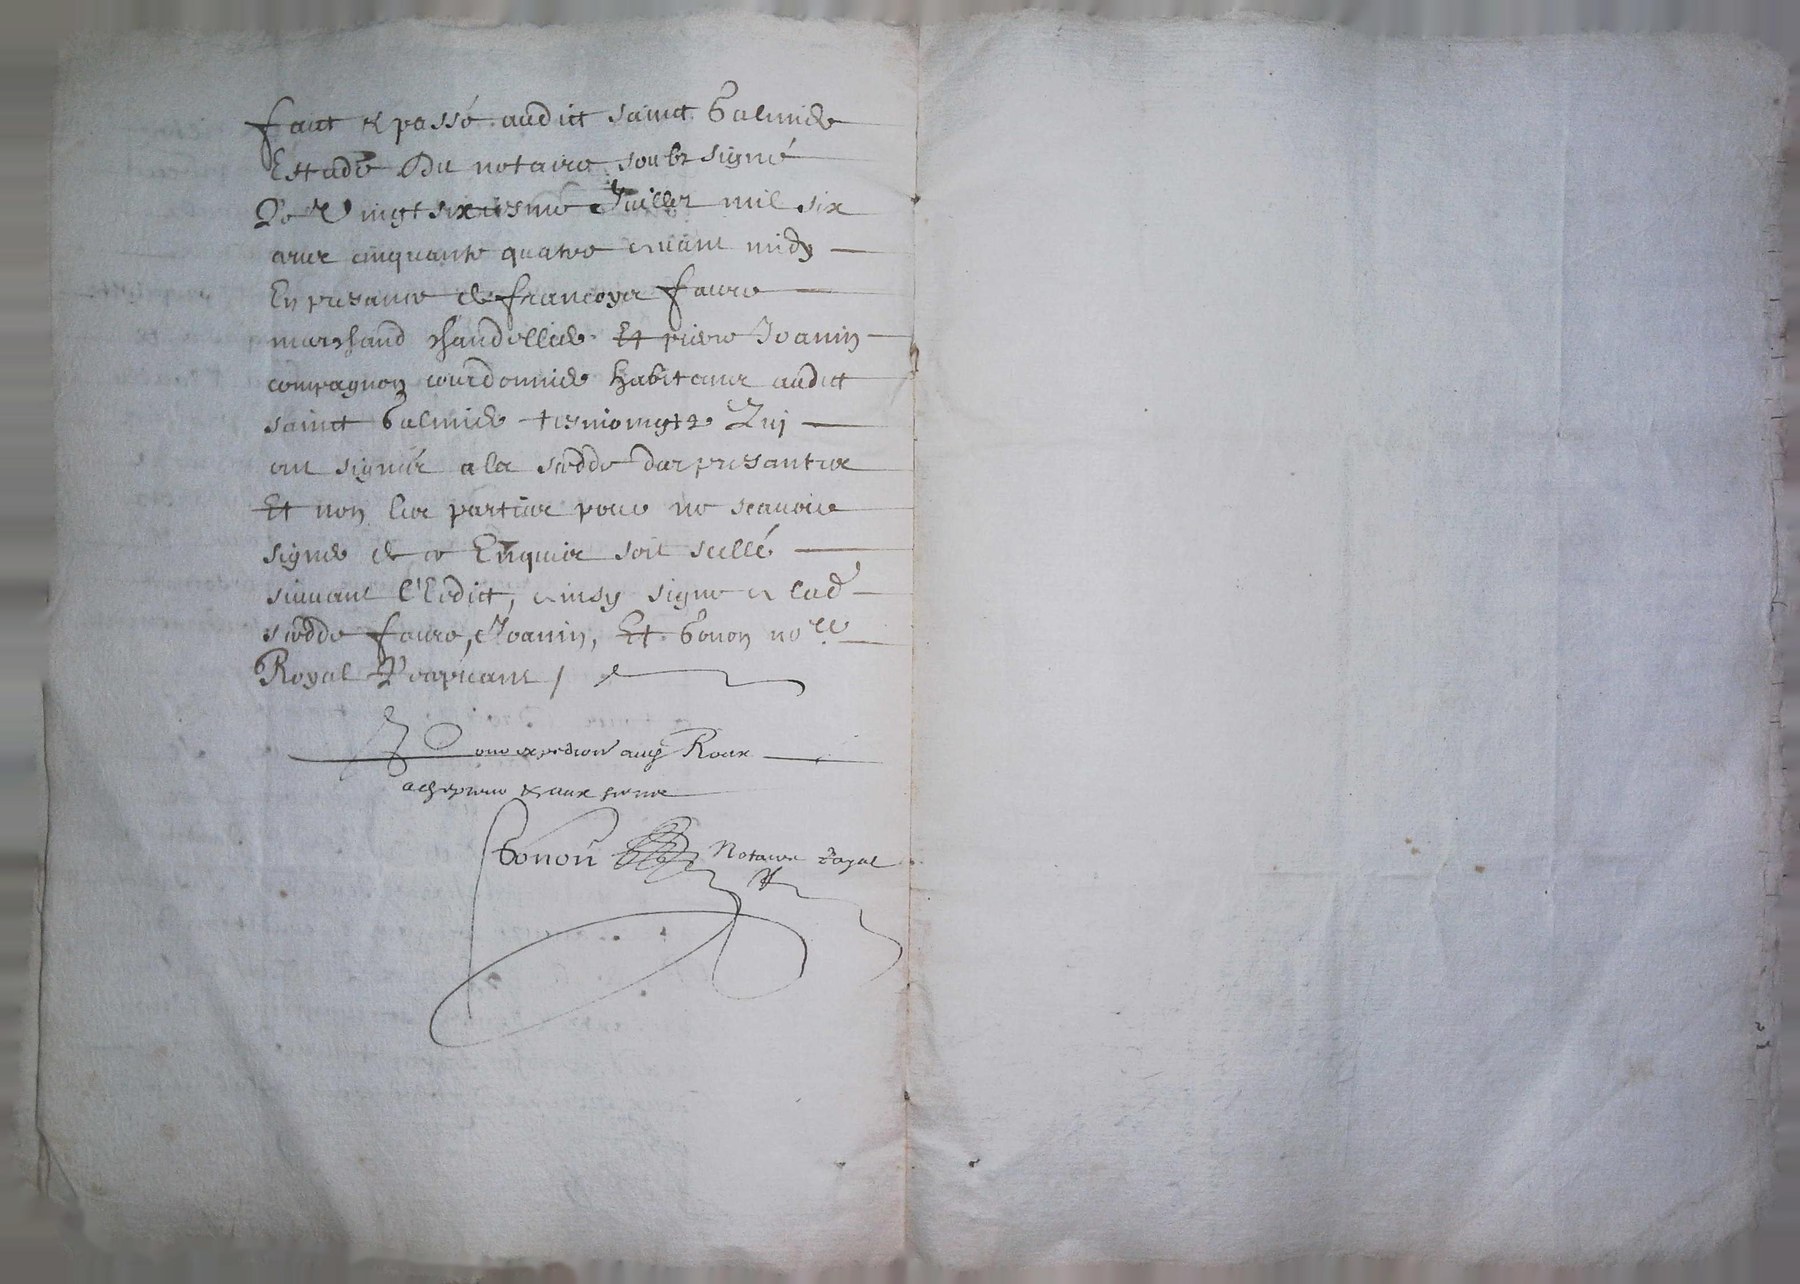 faict & passé audict sainct Galmier
Estude Du notaire soubzsigné
Le Vingt sixiesme Juillet mil six
cens cinquante quatre avant midy
En presance de francoys faure
marchand chandellier Et pierre Joanin
compagnon courdonnier habitans audict
sainct Galmier tesmoingtz Quj
ont signés a la cedde des presantes
Et non les parties pour ne scavoir
signer de ce Enquis soit scellé
suivant l'Edict, ainsy signe a lad
cedde faure, Joanin, Et Gonon no.re
Royal Recepvant /
Pour expedition aud Roux
Gonon Notaire Royal